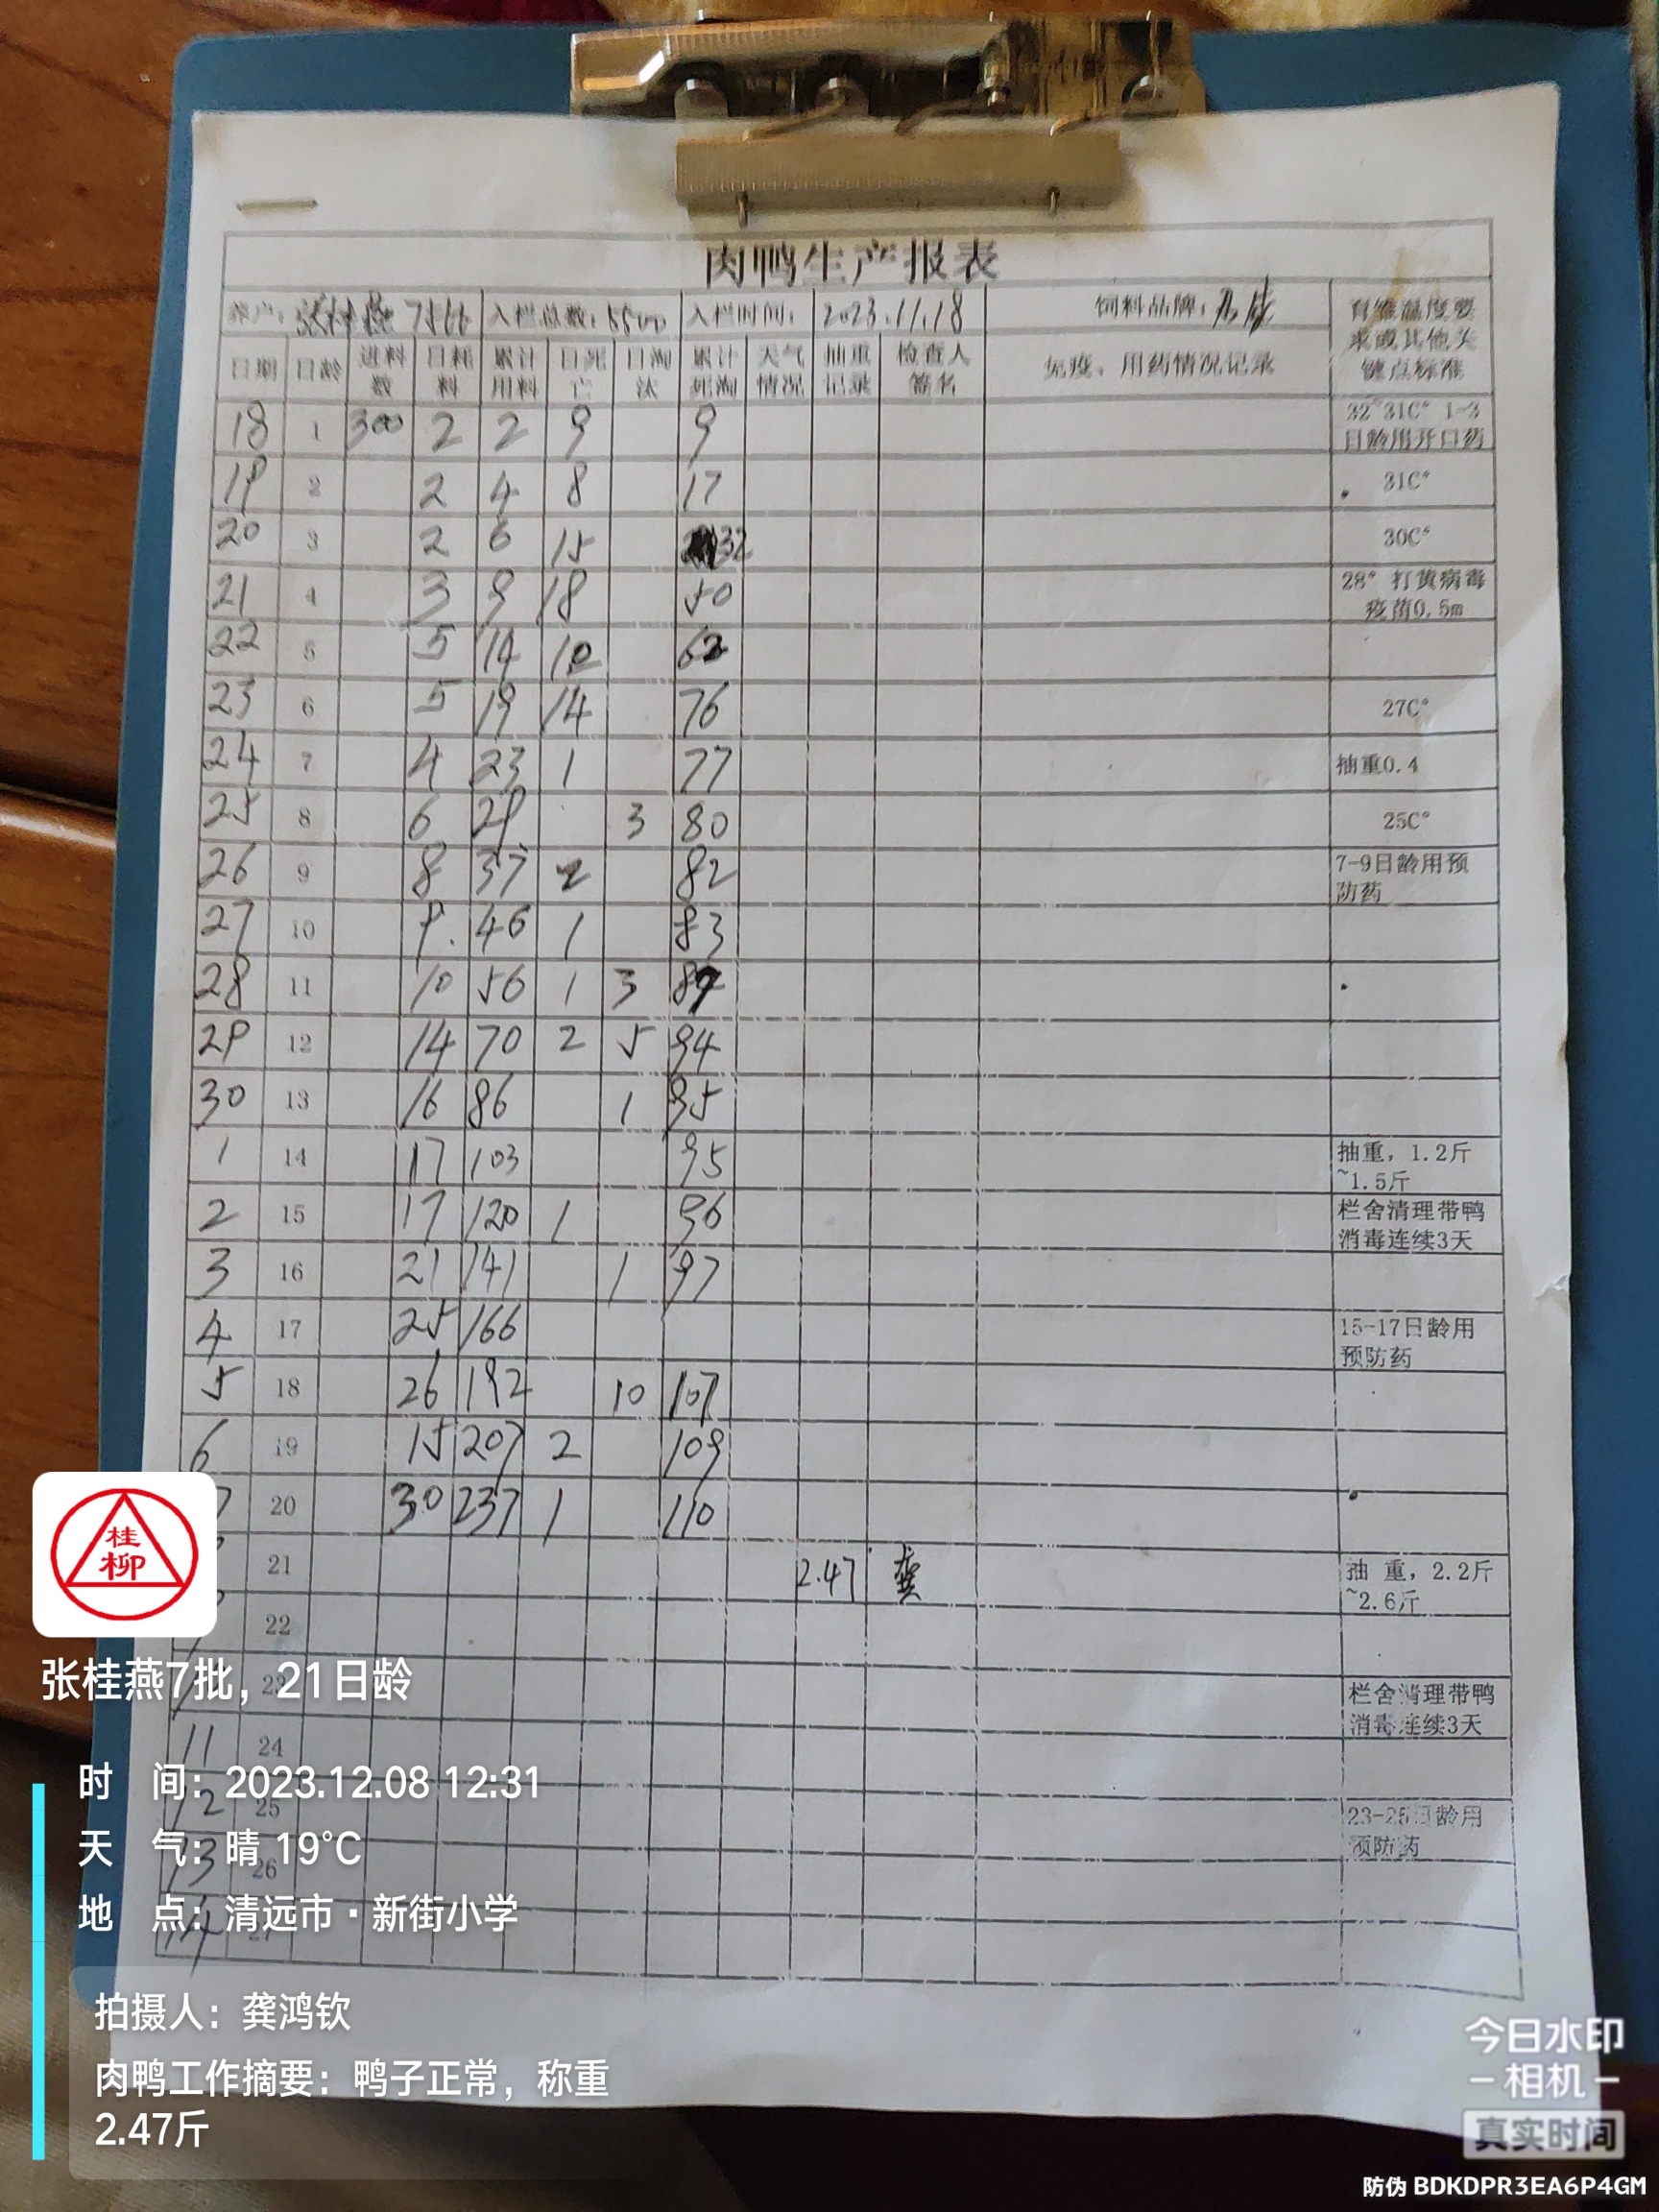 肉鸭生产报表
养户：张桂燕 7批 入栏总数：5500 入栏时间： 2023.11.18 饲料品牌： 育雏温度要求或其他关键点标准
日期 日龄 进料数 日耗料 累计用料 日死亡 日淘汰 累计死淘 天气情况 抽重记录 检查人签名 免疫、用药情况记录
18 1 300 2 2 9 9 32~31C° 1-3日龄用开口药
19 2 2 4 8 17 31C°
20 3 2 6 15 32 30C°
21 4 3 9 18 50 28° 打黄病毒疫苗0.5m
22 5 5 14 12 62
23 6 5 19 14 76 27C°
24 7 4 23 1 77 抽重0.4
25 8 6 29 3 80 25C°
26 9 8 37 2 82 7-9日龄用预防药
27 10 9. 46 1 83
28 11 10 56 1 3 87
29 12 14 70 2 5 94
30 13 16 86 1 95
1 14 17 103 95 抽重，1.2斤~1.5斤
2 15 17 120 1 96 栏舍清理带鸭消毒连续3天
3 16 21 141 1 97
4 17 25 166 15-17日龄用预防药
5 18 26 192 10 107
6 19 15 207 2 109
7 20 30 237 1 110
21 2.47 龚 抽 重，2.2斤~2.6斤
22
23 栏舍清理带鸭消毒连续3天
11 24
12 25 23-25日龄用预防药
13 26
14 27
桂柳
张桂燕7批，21日龄
时 间：2023.12.08 12:31
天 气：晴 19°C
地 点：清远市·新街小学
拍摄人：龚鸿钦
肉鸭工作摘要：鸭子正常，称重
2.47斤
今日水印
-相机-
真实时间
防伪 BDKDPR3EA6P4GM